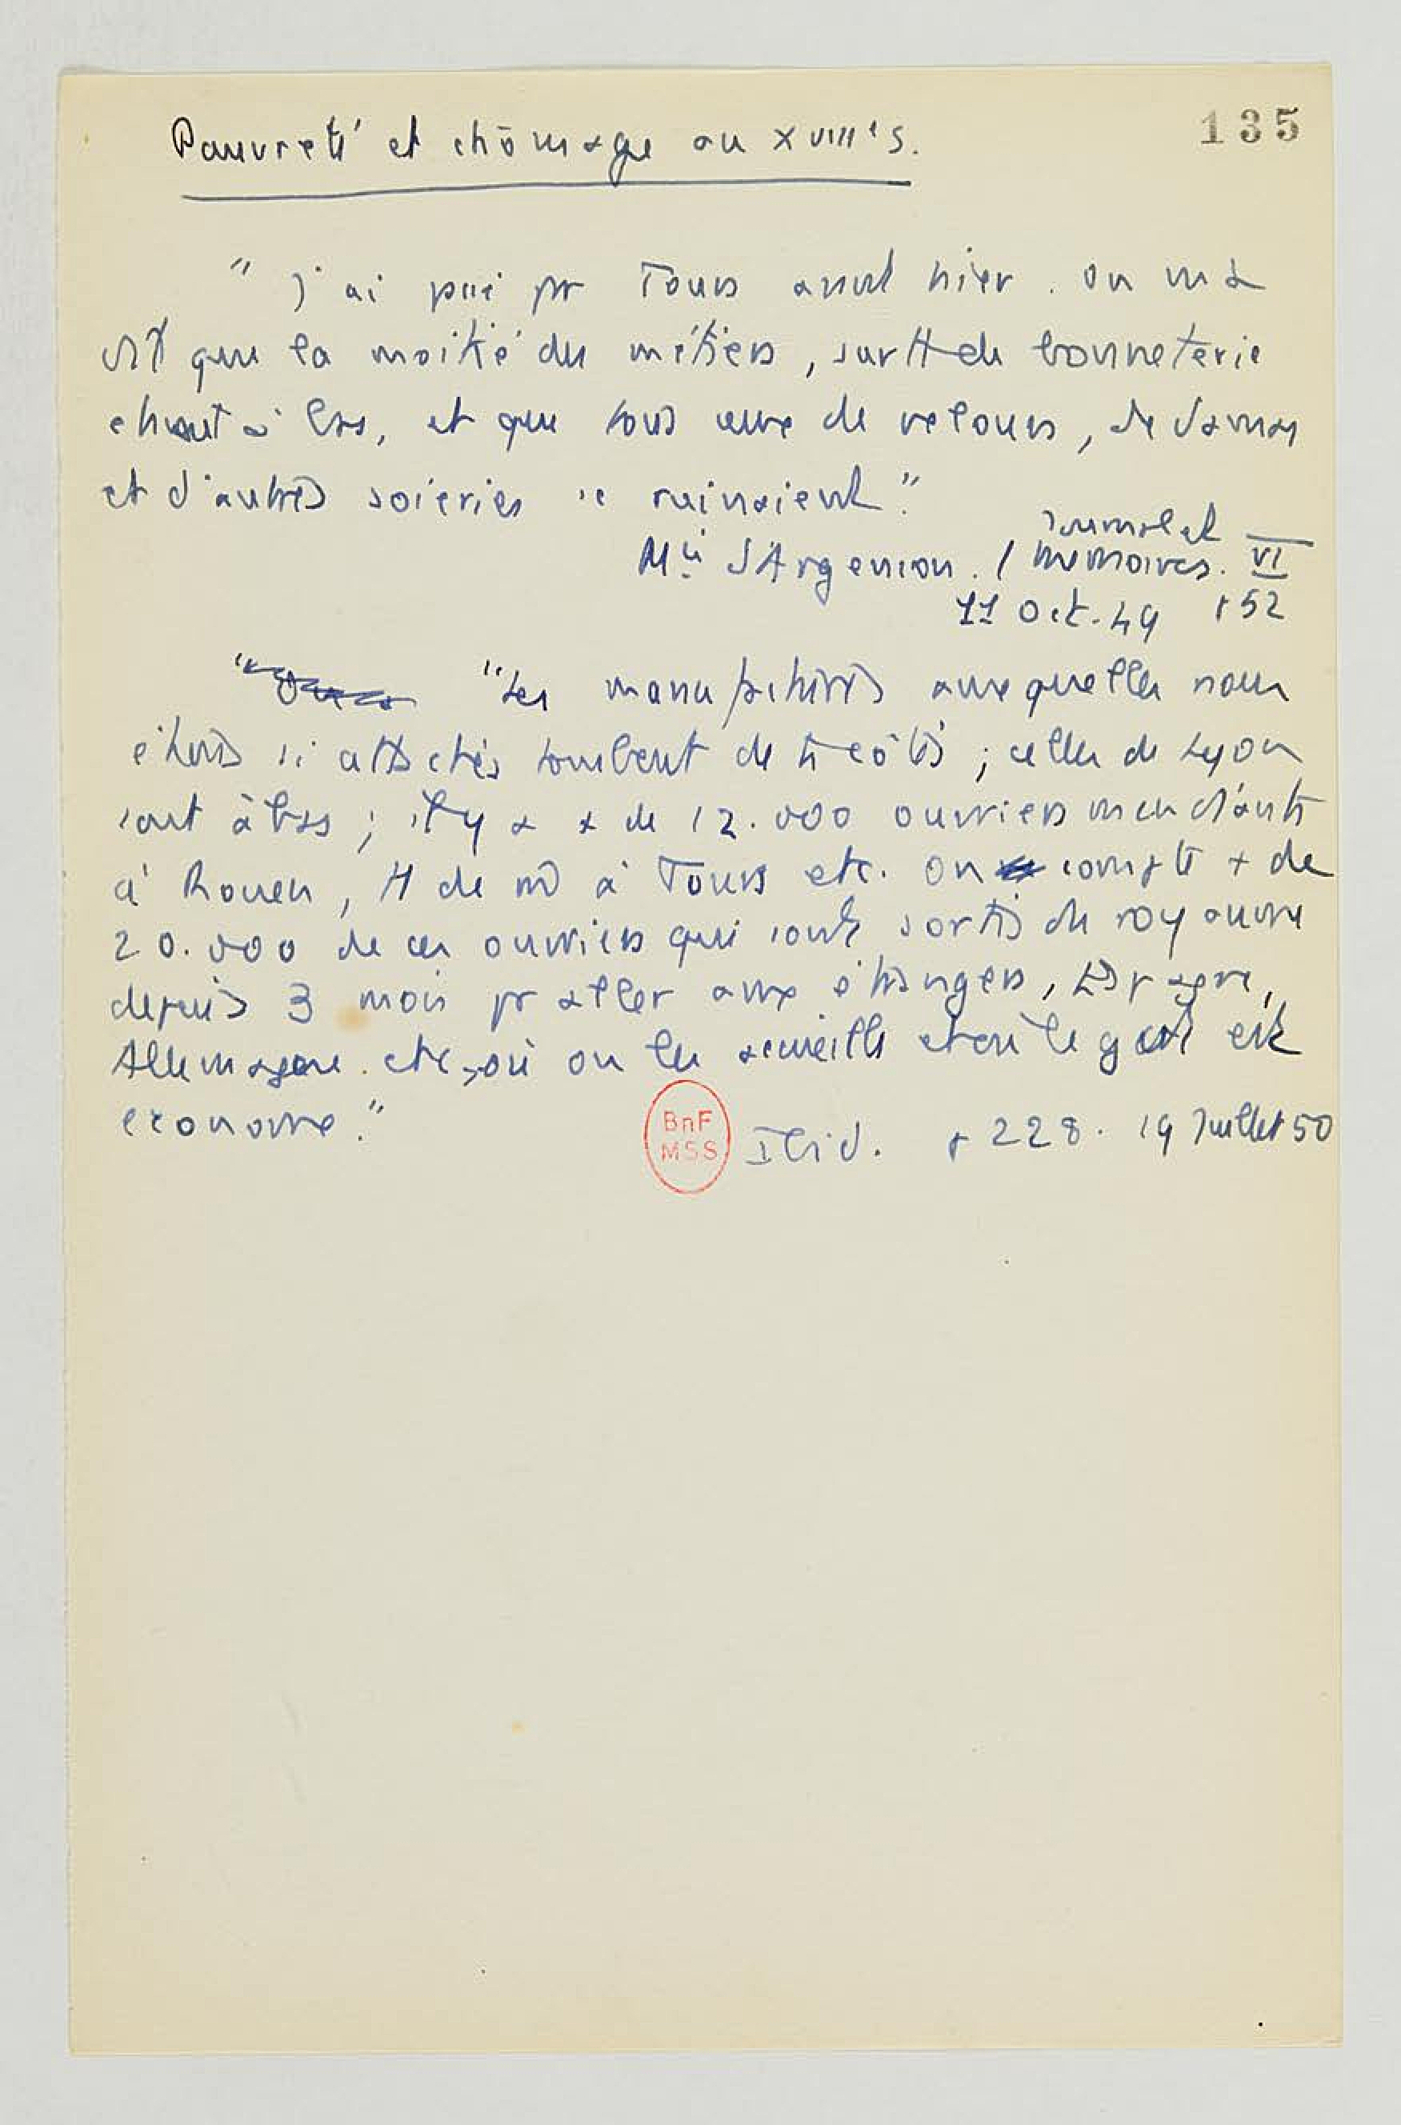 135
Pauvreté et chômage au XVIIIe s.
" J'ai passé pr Tours avant hier. On m'a
dit que la moitié des métiers, surtt de bonneterie
à bas, et que tous ceux de velours, de damas
et d'autres soieries se ruinaient."
Mis d'Argenson. / Journal et Mémoires. VI
11 Oct. 49 p 52
"Les manufactures auxquelles nous
étions si attachés tombent de ts côtés ; celles de Lyon
sont à bas ; il y a + de 12.000 ouvriers mendiants
à Rouen, tt de m à Tours etc. On compte + de
20.000 de ces ouvriers qui sont sortis du royaume
depuis 3 mois pr aller aux étrangers, Espagne,
Allemagne. etc, où on les accueille et où le gvt est
économe."
BnF
MSS
Ibid. p 228. 19 Juillet 50